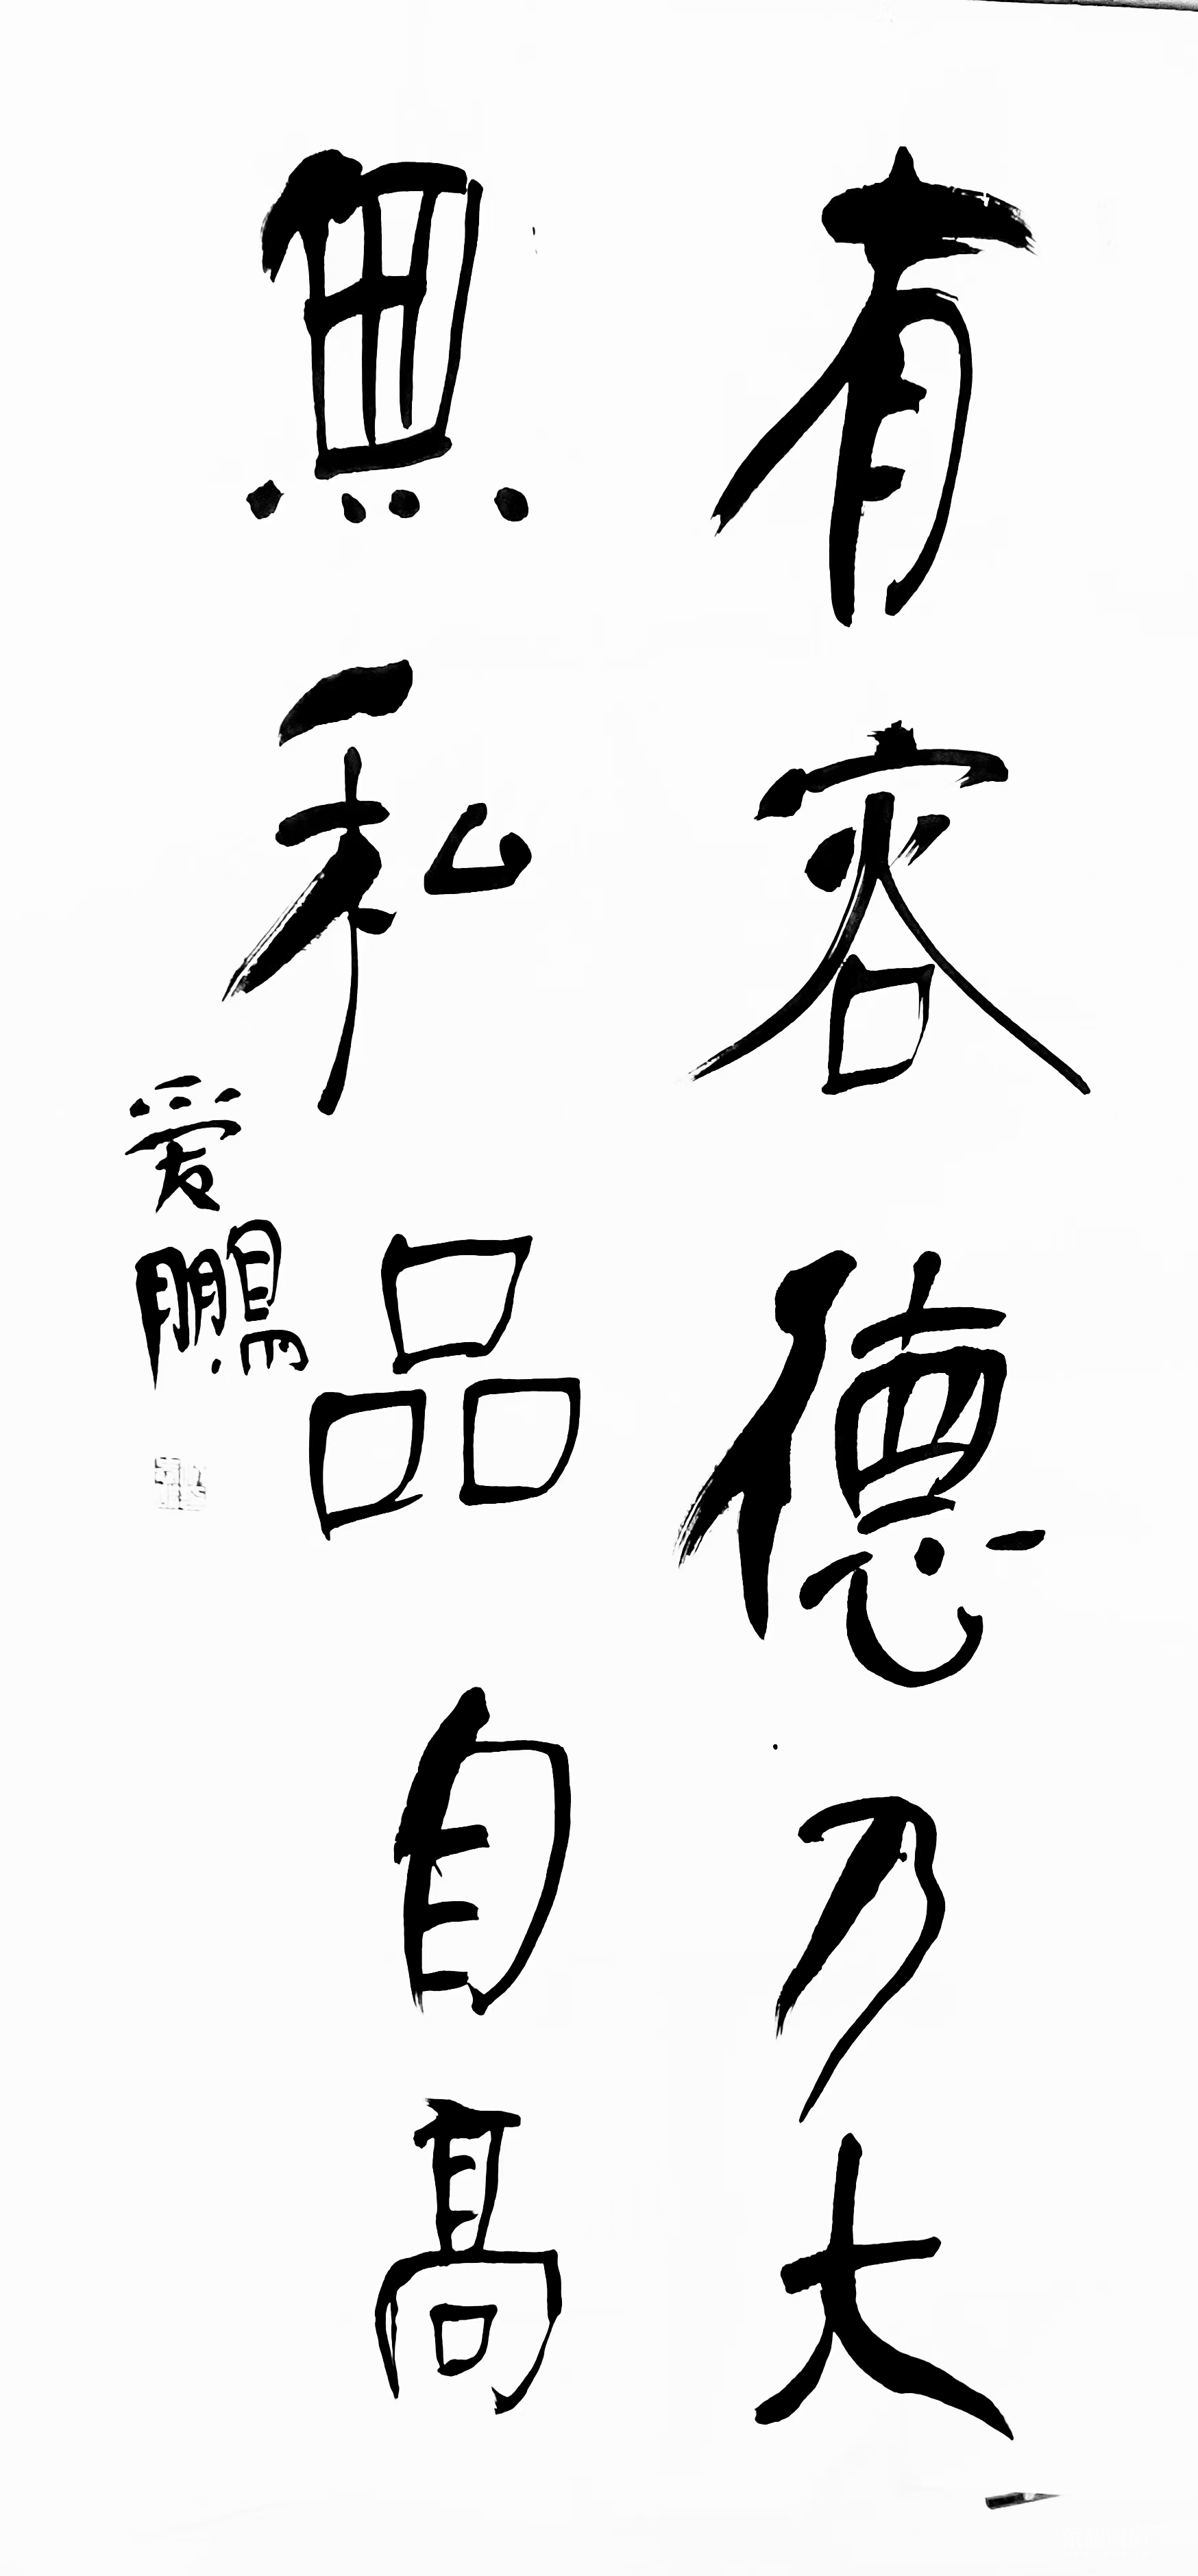 有容德乃大
無私品自高
爱鵬